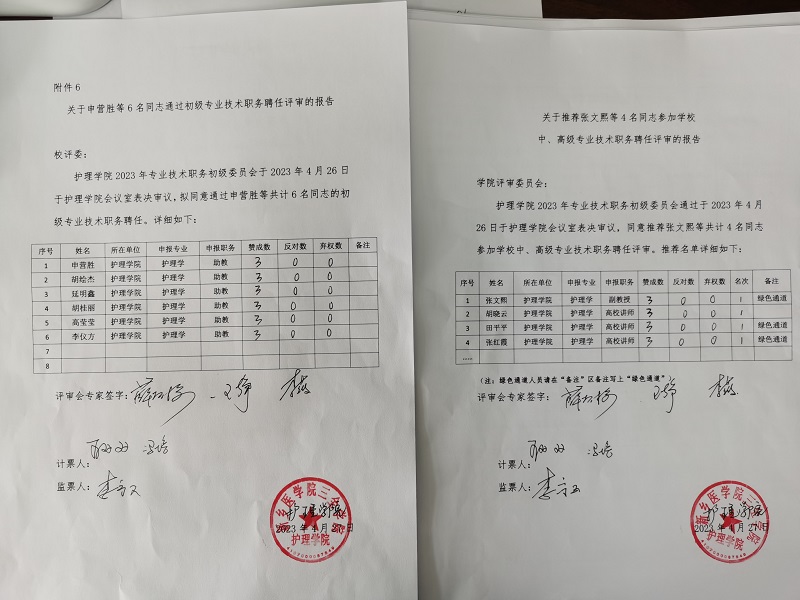 附件 6
关于申营胜等 6 名同志通过初级专业技术职务聘任评审的报告
校评委：
护理学院 2023 年专业技术职务初级委员会于 2023 年 4 月 26 日
于护理学院会议室表决审议，拟同意通过申营胜等共计 6 名同志的初
级专业技术职务聘任。详细如下：
序号 姓名 所在单位 申报专业 申报职务 赞成数 反对数 弃权数 备注
1 申营胜 护理学院 护理学 助教 3 0 0
2 胡绘杰 护理学院 护理学 助教 3 0 0
3 延明鑫 护理学院 护理学 助教 3 0 0
4 胡桂丽 护理学院 护理学 助教 3 0 0
5 高莹莹 护理学院 护理学 助教 3 0 0
6 李仪方 护理学院 护理学 助教 3 0 0
7
8
评审会专家签字：
计票人：
监票人：
护理学院
2023 年 4 月 27 日
新乡医学院三全学院
护理学院
关于推荐张文熙等 4 名同志参加学校
中、高级专业技术职务聘任评审的报告
学院评审委员会：
护理学院 2023 年专业技术职务初级委员会通过于 2023 年 4 月
26 日于护理学院会议室表决审议，同意推荐张文熙等共计 4 名同志
参加学校中、高级专业技术职务聘任评审。推荐名单详细如下：
序号 姓名 所在单位 申报专业 申报职务 赞成数 反对数 弃权数 名次 备注
1 张文熙 护理学院 护理学 副教授 3 0 0 1 绿色通道
2 胡晓云 护理学院 护理学 高校讲师 3 0 0 1
3 田平平 护理学院 护理学 高校讲师 3 0 0 1 绿色通道
4 张红霞 护理学院 护理学 高校讲师 3 0 0 1 绿色通道
……
（注：绿色通道人员请在“备注”区备注写上“绿色通道”）
评审会专家签字：
计票人：
监票人：
护理学院
2023 年 4 月 27 日
新乡医学院三全学院
护理学院